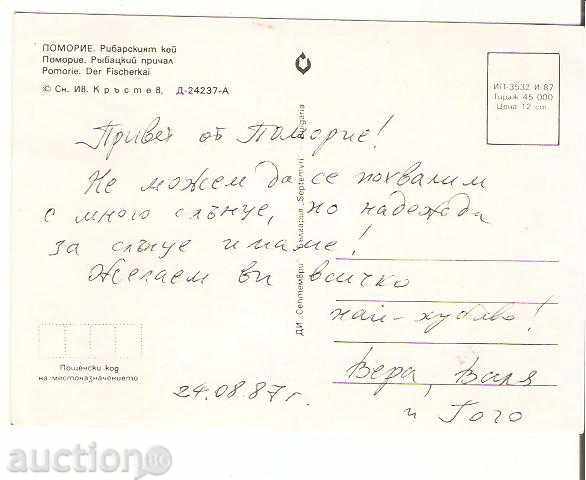 ПОМОРИЕ. Рибарският кей
Поморие. Рыбацкий причал
Pomorie. Der Fischerkai
© Сн. Ив. Кръстев, Д-24237-А
ИП-3532 И 87
Тираж 45 000
Цена 12 ст.
Привет от Поморие!
Не можем да се похвалим
с много слънце, но надежда
за слънце имаме!
Желаем ви всичко
най-хубаво!
Вера, Валя
и Гого
24.08.87 г.
Пощенски код
на местоназначението
ДИ „Септември“ България „Septemvri“ Bulgaria
auction BG